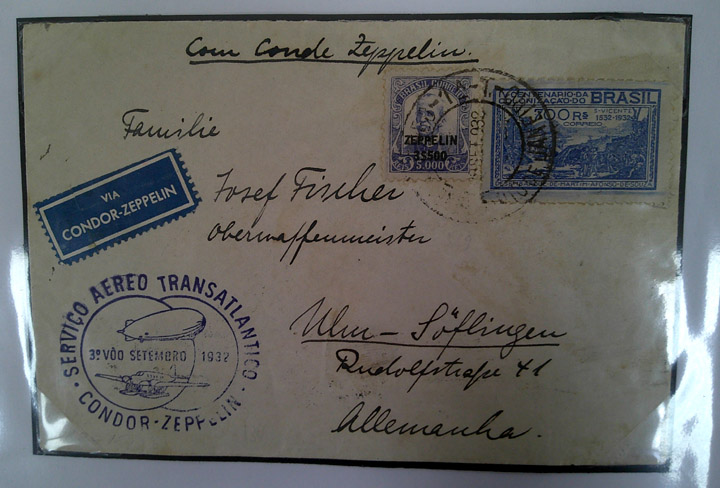 Com Conde Zeppelin.
BRASIL CORREIO
ZEPPELIN
3$500
5.000
IV CENTENARIO DA
COLONIZAÇÃO DO BRASIL
S. VICENTE
300 Rs 1532-1932
CORREIO
Familie
Josef Fischer
Oberwaffenmeister
Ulm-Söflingen
Rudolfstraße 41
Allemanha.
VIA
CONDOR-ZEPPELIN
SERVIÇO AEREO TRANSATLANTICO
3º VÔO SETEMBRO 1932
CONDOR-ZEPPELIN